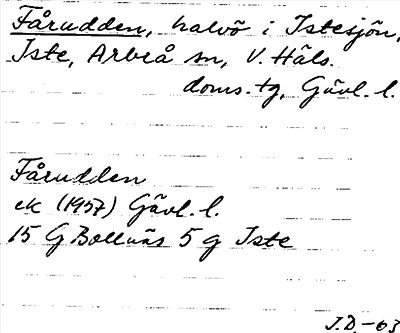 Fårudden, halvö i Istesjön,
Iste, Arbrå sn, V. Häls.
doms.tg, Gävl. l.
Fårudden
ek (1957) Gävl. l.
15 G Bollnäs 5 g Iste
J.D.-63